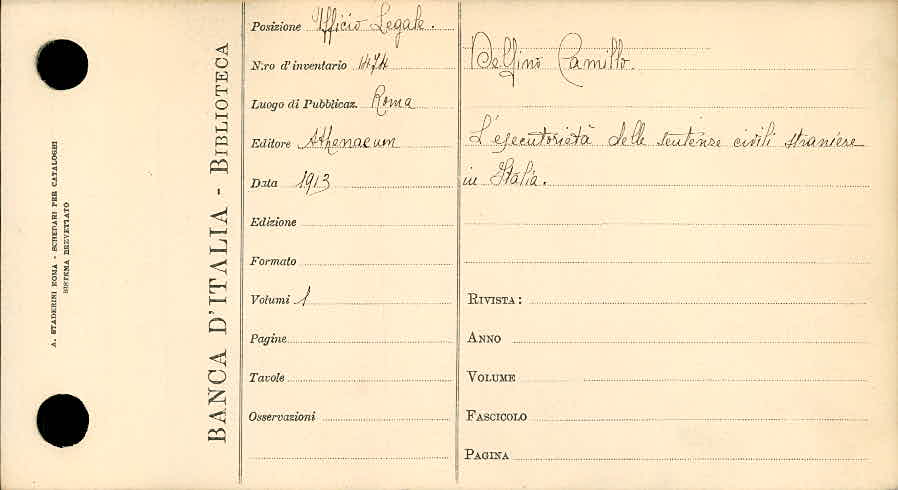 A. STADERINI ROMA - SCHEDARI PER CATALOGHI
SISTEMA BREVETTATO
BANCA D'ITALIA - BIBLIOTECA
Posizione Ufficio Legale.
N.ro d'inventario 1474
Luogo di Pubblicaz. Roma
Editore Athenaeum
Data 1913
Edizione
Formato
Volumi 1
Pagine
Tavole
Osservazioni
Delfino Camillo.
L'esecutorietà delle sentenze civili straniere
in Italia.
RIVISTA:
ANNO
VOLUME
FASCICOLO
PAGINA